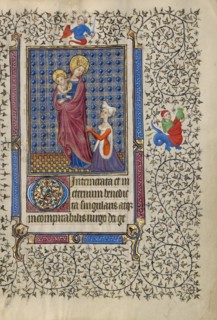 Intemerata et in
eternum benedic
ta singularis atq
incomparabilis virgo dei ge